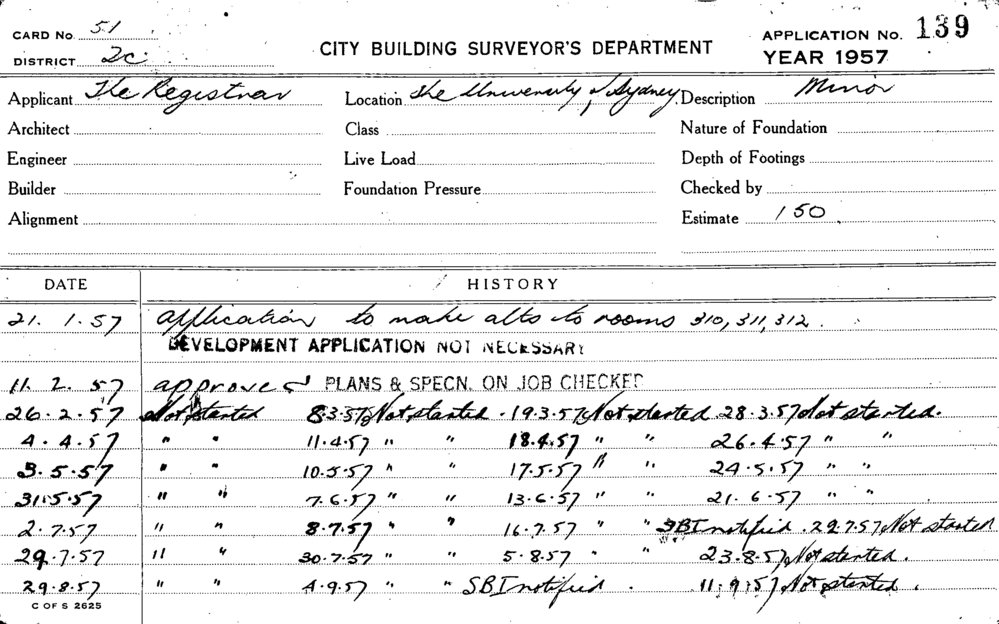 CARD No. 51
DISTRICT 2c
CITY BUILDING SURVEYOR'S DEPARTMENT
APPLICATION No. 139
YEAR 1957
Applicant The Registrar Location The University of Sydney. Description Minor
Architect Class Nature of Foundation
Engineer Live Load Depth of Footings
Builder Foundation Pressure Checked by
Alignment Estimate 150.
DATE HISTORY
21. 1. 57 Application to make alts to rooms 310, 311, 312.
DEVELOPMENT APPLICATION NOT NECESSARY
11. 2. 57 approved PLANS & SPECN. ON JOB CHECKED
26. 2. 57 Not started 8.3.57 Not started. 19.3.57 Not started 28.3.57 Not started.
4. 4. 57 " " 11.4.57 " " 18.4.57 " " 26.4.57 " "
3. 5. 57 " " 10.5.57 " " 17.5.57 " " 24.5.57 " "
31.5.57 " " 7.6.57 " " 13.6.57 " " 21.6.57 " "
2.7.57 " " 8.7.57 " " 16.7.57 " " SBI notified. 22.7.57 Not started
29.7.57 " " 30.7.57 " " 5.8.57 " " 23.8.57 Not started.
29.8.57 " " 4.9.57 " " SBI notified. 11.9.57 Not started.
C OF S 2625